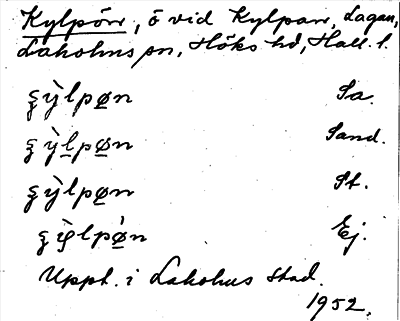 Kylpön, ö vid Kylpan, Lagan,
Laholms sn, Höks hd, Hall. l.
ʂỳlpøn Sa.
ʂỳlpøn Sand.
ʂỳlpøn St.
ʂỳlpøn Ej.
Uppt. i Laholms stad.
1952.